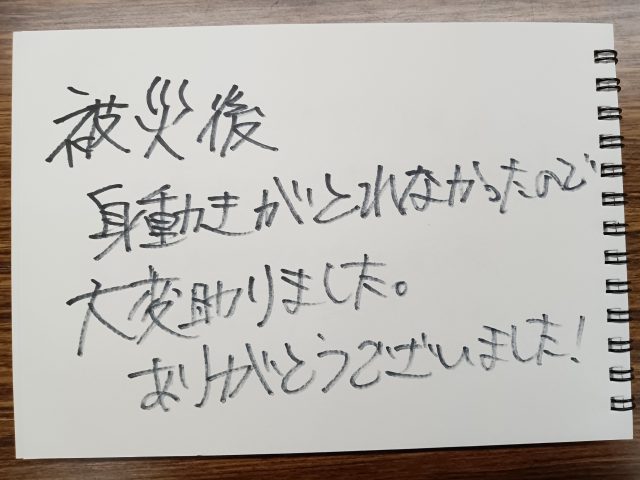 被災後
身動きがとれなかったので
大変助りました。
ありがとうございました!